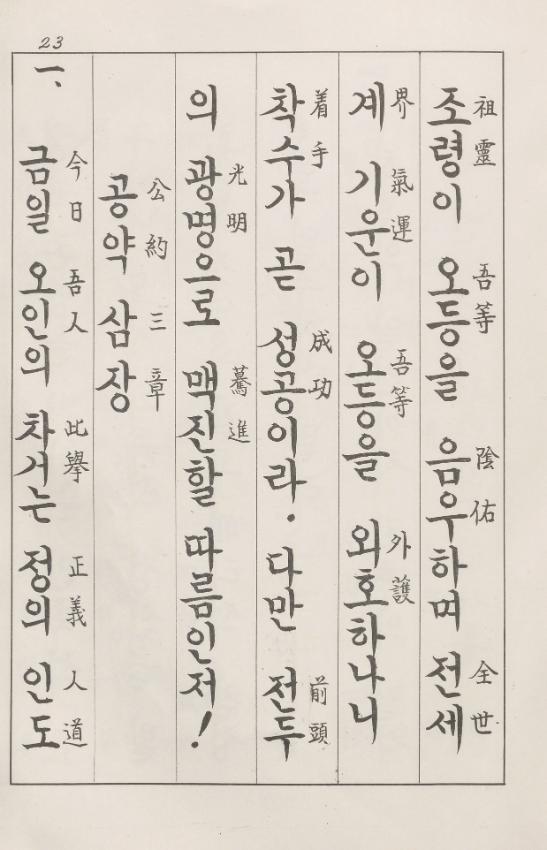 23
조령이 오등을 음우하며 전세
祖靈 吾等 陰佑 全世
계 기운이 오등을 외호하나니
界 氣運 吾等 外護
착수가 곧 성공이라. 다만 전두
着手 成功 前頭
의 광명으로 맥진할 따름인저!
光明 驀進
공약 삼장
公約 三章
一. 금일 오인의 차거는 정의 인도
今日 吾人 此擧 正義 人道